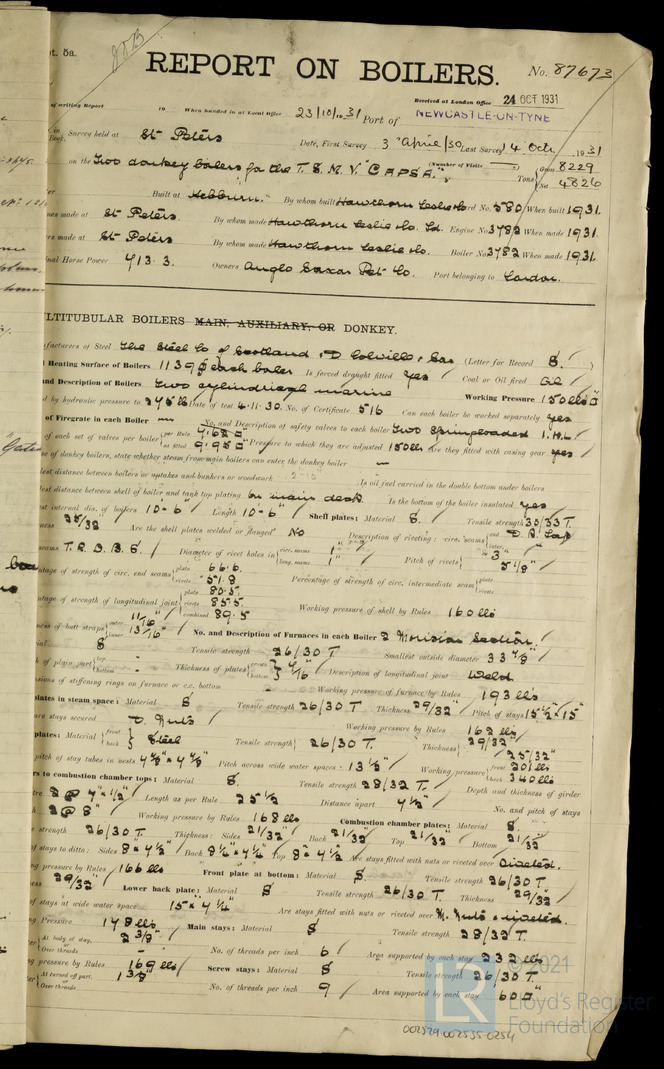 pt. 5a.
REPORT ON BOILERS.
No. 87673
of writing Report 19 When handed in at Local Office 23/10/1931 Port of
Received at London Office 24 OCT 1931
NEWCASTLE-ON-TYNE
Survey held at St Peters Date, First Survey 3 April/30 Last Survey 4 Octr. 1931
on the Two donkey boilers for the T. S. M. V. "CAPSA." (Number of Visits Tons Gross 8229
Net 4826
Built at Hebburn. By whom built Hawthorn Leslie & Co Ltd Yard No. 580 When built 1931.
made at St Peters. By whom made Hawthorn Leslie & Co. Ld. Engine No 3782 When made 1931.
made at St Peters By whom made Hawthorn Leslie & Co. Boiler No 3782 When made 1931.
Horse Power 713.3. Owners Anglo Saxon Pet. Co. Port belonging to London.
MULTITUBULAR BOILERS MAIN, AUXILIARY, OR DONKEY.
Manufacturers of Steel The Steel Co of Scotland & D. Colville & Sons (Letter for Record S. )
Heating Surface of Boilers 1139 each boiler Is forced draught fitted Yes Coal or Oil fired Oil
and Description of Boilers Two cylindrical marine Working Pressure 150 lbs □"
by hydraulic pressure to 275 lb Date of test 4.11.30. No. of Certificate 516 Can each boiler be worked separately Yes
of Firegrate in each Boiler — No. and Description of safety valves to each boiler Two Springloaded I.H.L.
of each set of valves per boiler per Rule 9.62 □" as fitted 9.95 □" Pressure to which they are adjusted 150 lbs Are they fitted with easing gear yes
of donkey boilers, state whether steam from main boilers can enter the donkey boiler —
distance between boilers or uptakes and bunkers or woodwork Is oil fuel carried in the double bottom under boilers
distance between shell of boiler and tank top plating on main deck. Is the bottom of the boiler insulated yes
internal dia. of boilers 10-6" Length 10-6" Shell plates: Material S. Tensile strength 30/33 T.
25/32 Are the shell plates welded or flanged No Description of riveting: circ. seams end D.R. Lap
seams T. R. D. B. S. Diameter of rivet holes in circ. seams 1" long. seams 1" Pitch of rivets 3" 5 1/8"
percentage of strength of circ. end seams plate 66.6. rivets 51.8 Percentage of strength of circ. intermediate seam plate rivets
percentage of strength of longitudinal joint plate 80.5 rivets 85.5 combined 89.5 Working pressure of shell by Rules 160 lbs
of butt straps outer 11/16" inner 13/16" No. and Description of Furnaces in each Boiler 2 Morison Section.
S Tensile strength 26/30 T Smallest outside diameter 33 7/8"
of plain part top - bottom - Thickness of plates crown bottom 7/16" Description of longitudinal joint Weld
of stiffening rings on furnace or c.c. bottom - Working pressure of furnace by Rules 193 lbs
plates in steam space: Material S Tensile strength 26/30 T. Thickness 29/32" Pitch of stays 15 1/2" x 15"
are stays secured D. Nuts Working pressure by Rules 162 lbs
plates: Material front back Steel Tensile strength 26/30 T. Thickness 29/32" 25/32"
pitch of stay tubes in nests Pitch across wide water spaces 13 1/2" Working pressure front 201 lbs back 340 lbs
to combustion chamber tops: Material S. Tensile strength 28/32 T. Depth and thickness of girder
2 @ 7" x 1/2" Length as per Rule 25 1/2 Distance apart 7 1/2" No. and pitch of stays
2 @ 8" Working pressure by Rules 168 lbs Combustion chamber plates: Material S.
strength 26/30 T. Thickness: Sides 21/32" Back 21/32" Top 21/32" Bottom 21/32"
of stays to ditto: Sides 8" x 7 1/2" Back Top 8" x 7 1/2" Are stays fitted with nuts or riveted over Riveted.
pressure by Rules 166 lbs Front plate at bottom: Material S Tensile strength 26/30 T.
29/32" Lower back plate: Material S Tensile strength 26/30 T. Thickness 29/32"
of stays at wide water space 15" x 7 1/4" Are stays fitted with nuts or riveted over N. Nuts & riveted.
Pressure 178 lbs Main stays: Material S Tensile strength 28/32 T.
At body of stay, or Over threads 2 3/8" No. of threads per inch 6 Area supported by each stay 232
pressure by Rules 169 lbs Screw stays: Material S Tensile strength 26/30 T.
At turned off part, or Over threads 1 3/8" No. of threads per inch 9 Area supported by each stay 60 □"
© 2021
Lloyd's Register
Foundation
002529-002535-0254